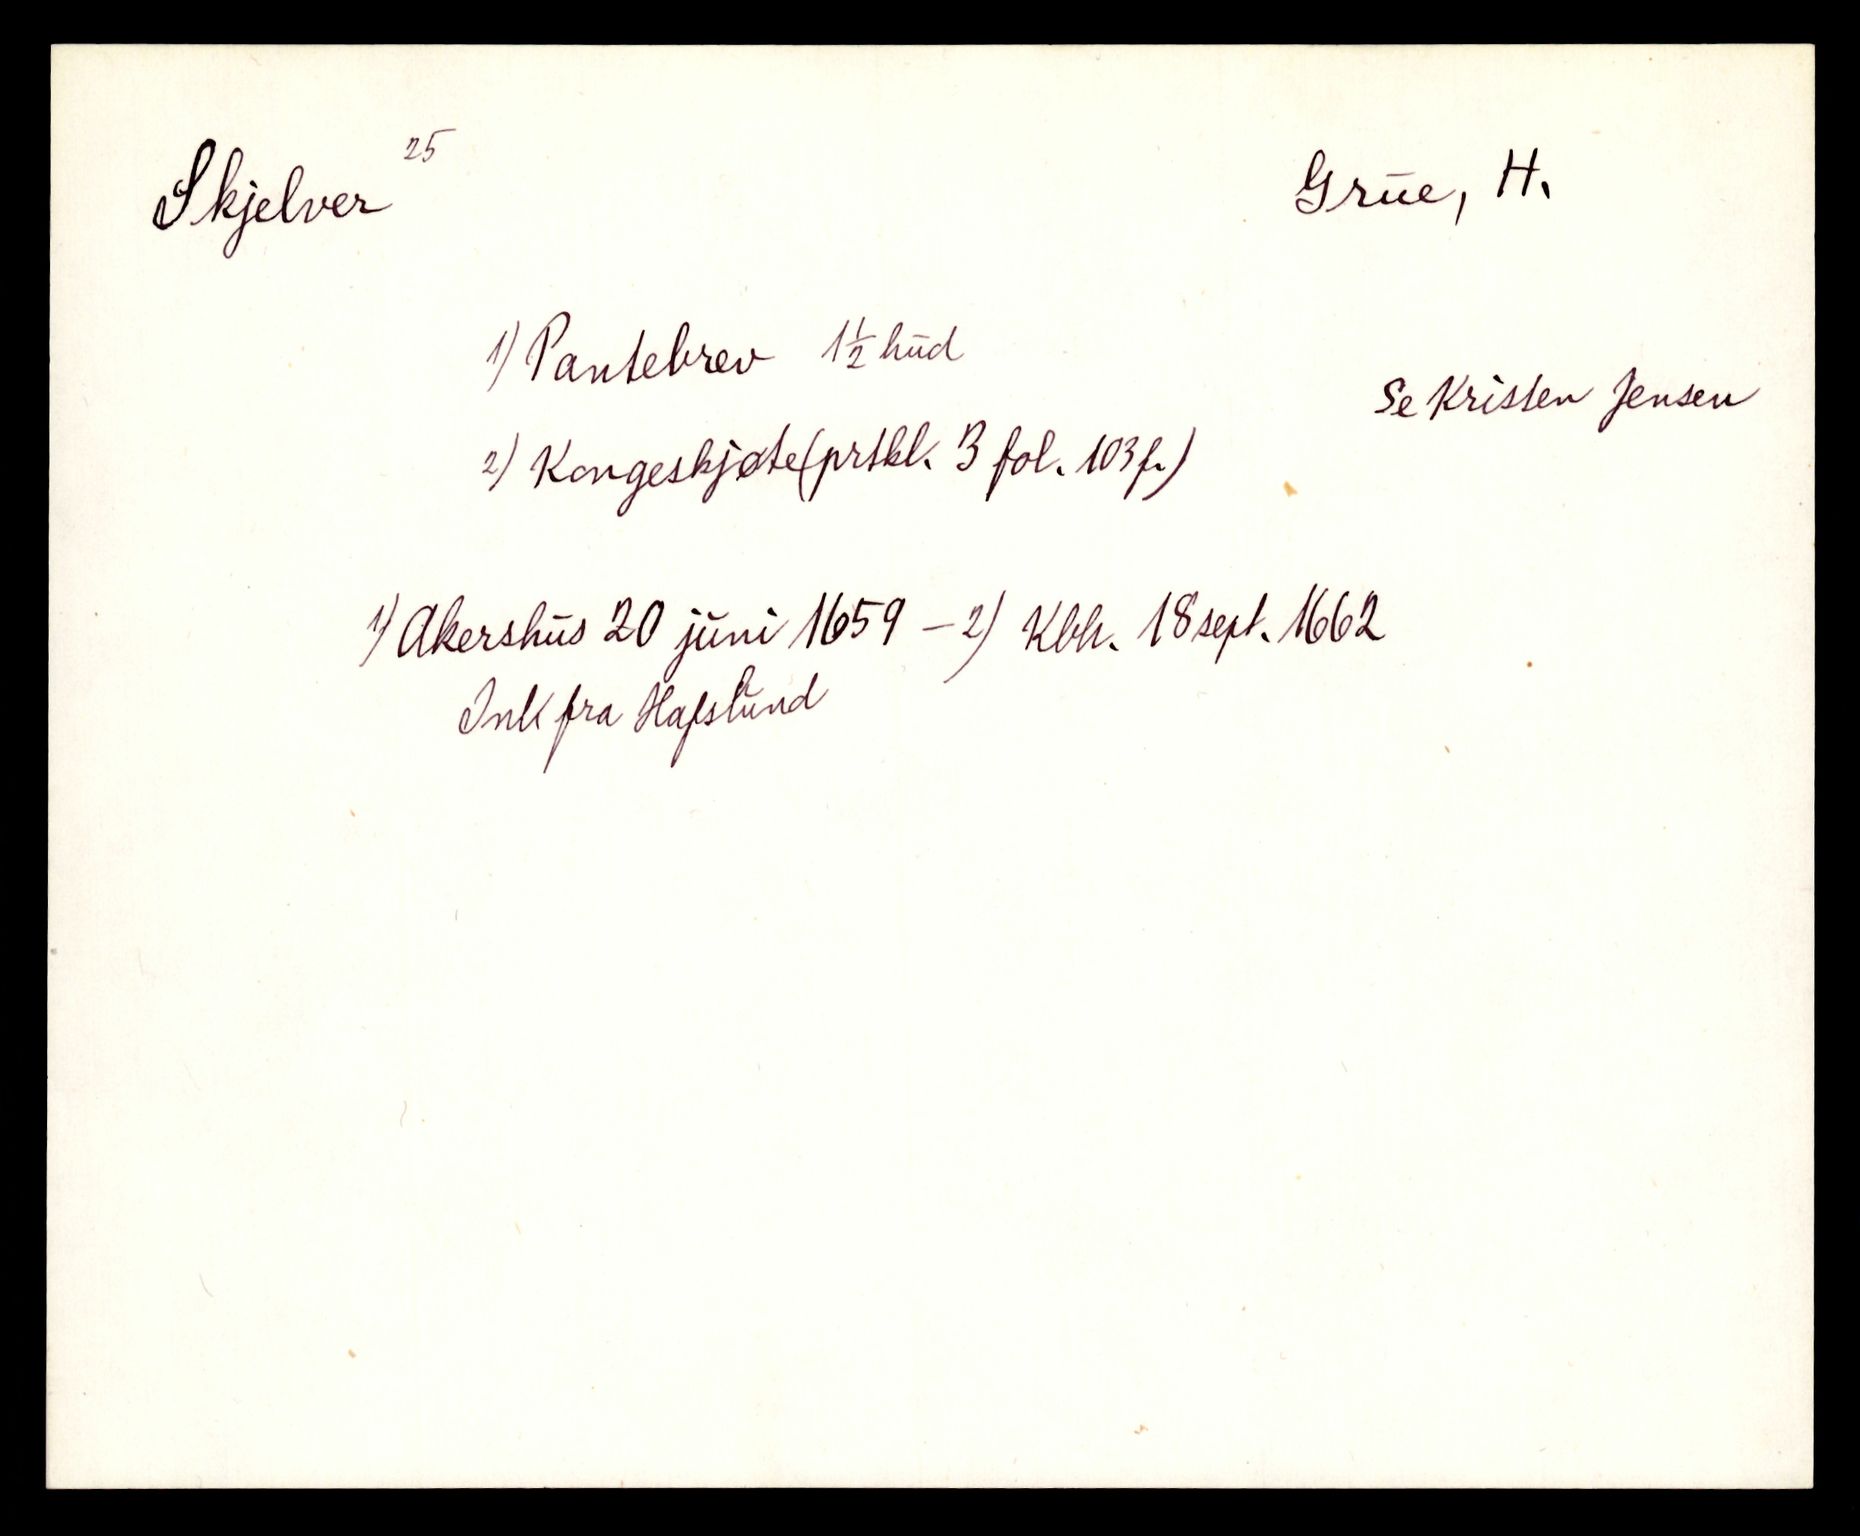 Skjelver 25
Grue, H.
1) Pantebrev 1½ hud
Se Kristen Jensen
2) Kongeskjøte (prtkl. 3 fol. 103 f.)
1) Akershus 20 juni 1659 – 2) Kbh. 18 sept. 1662
Ink fra Hafslund